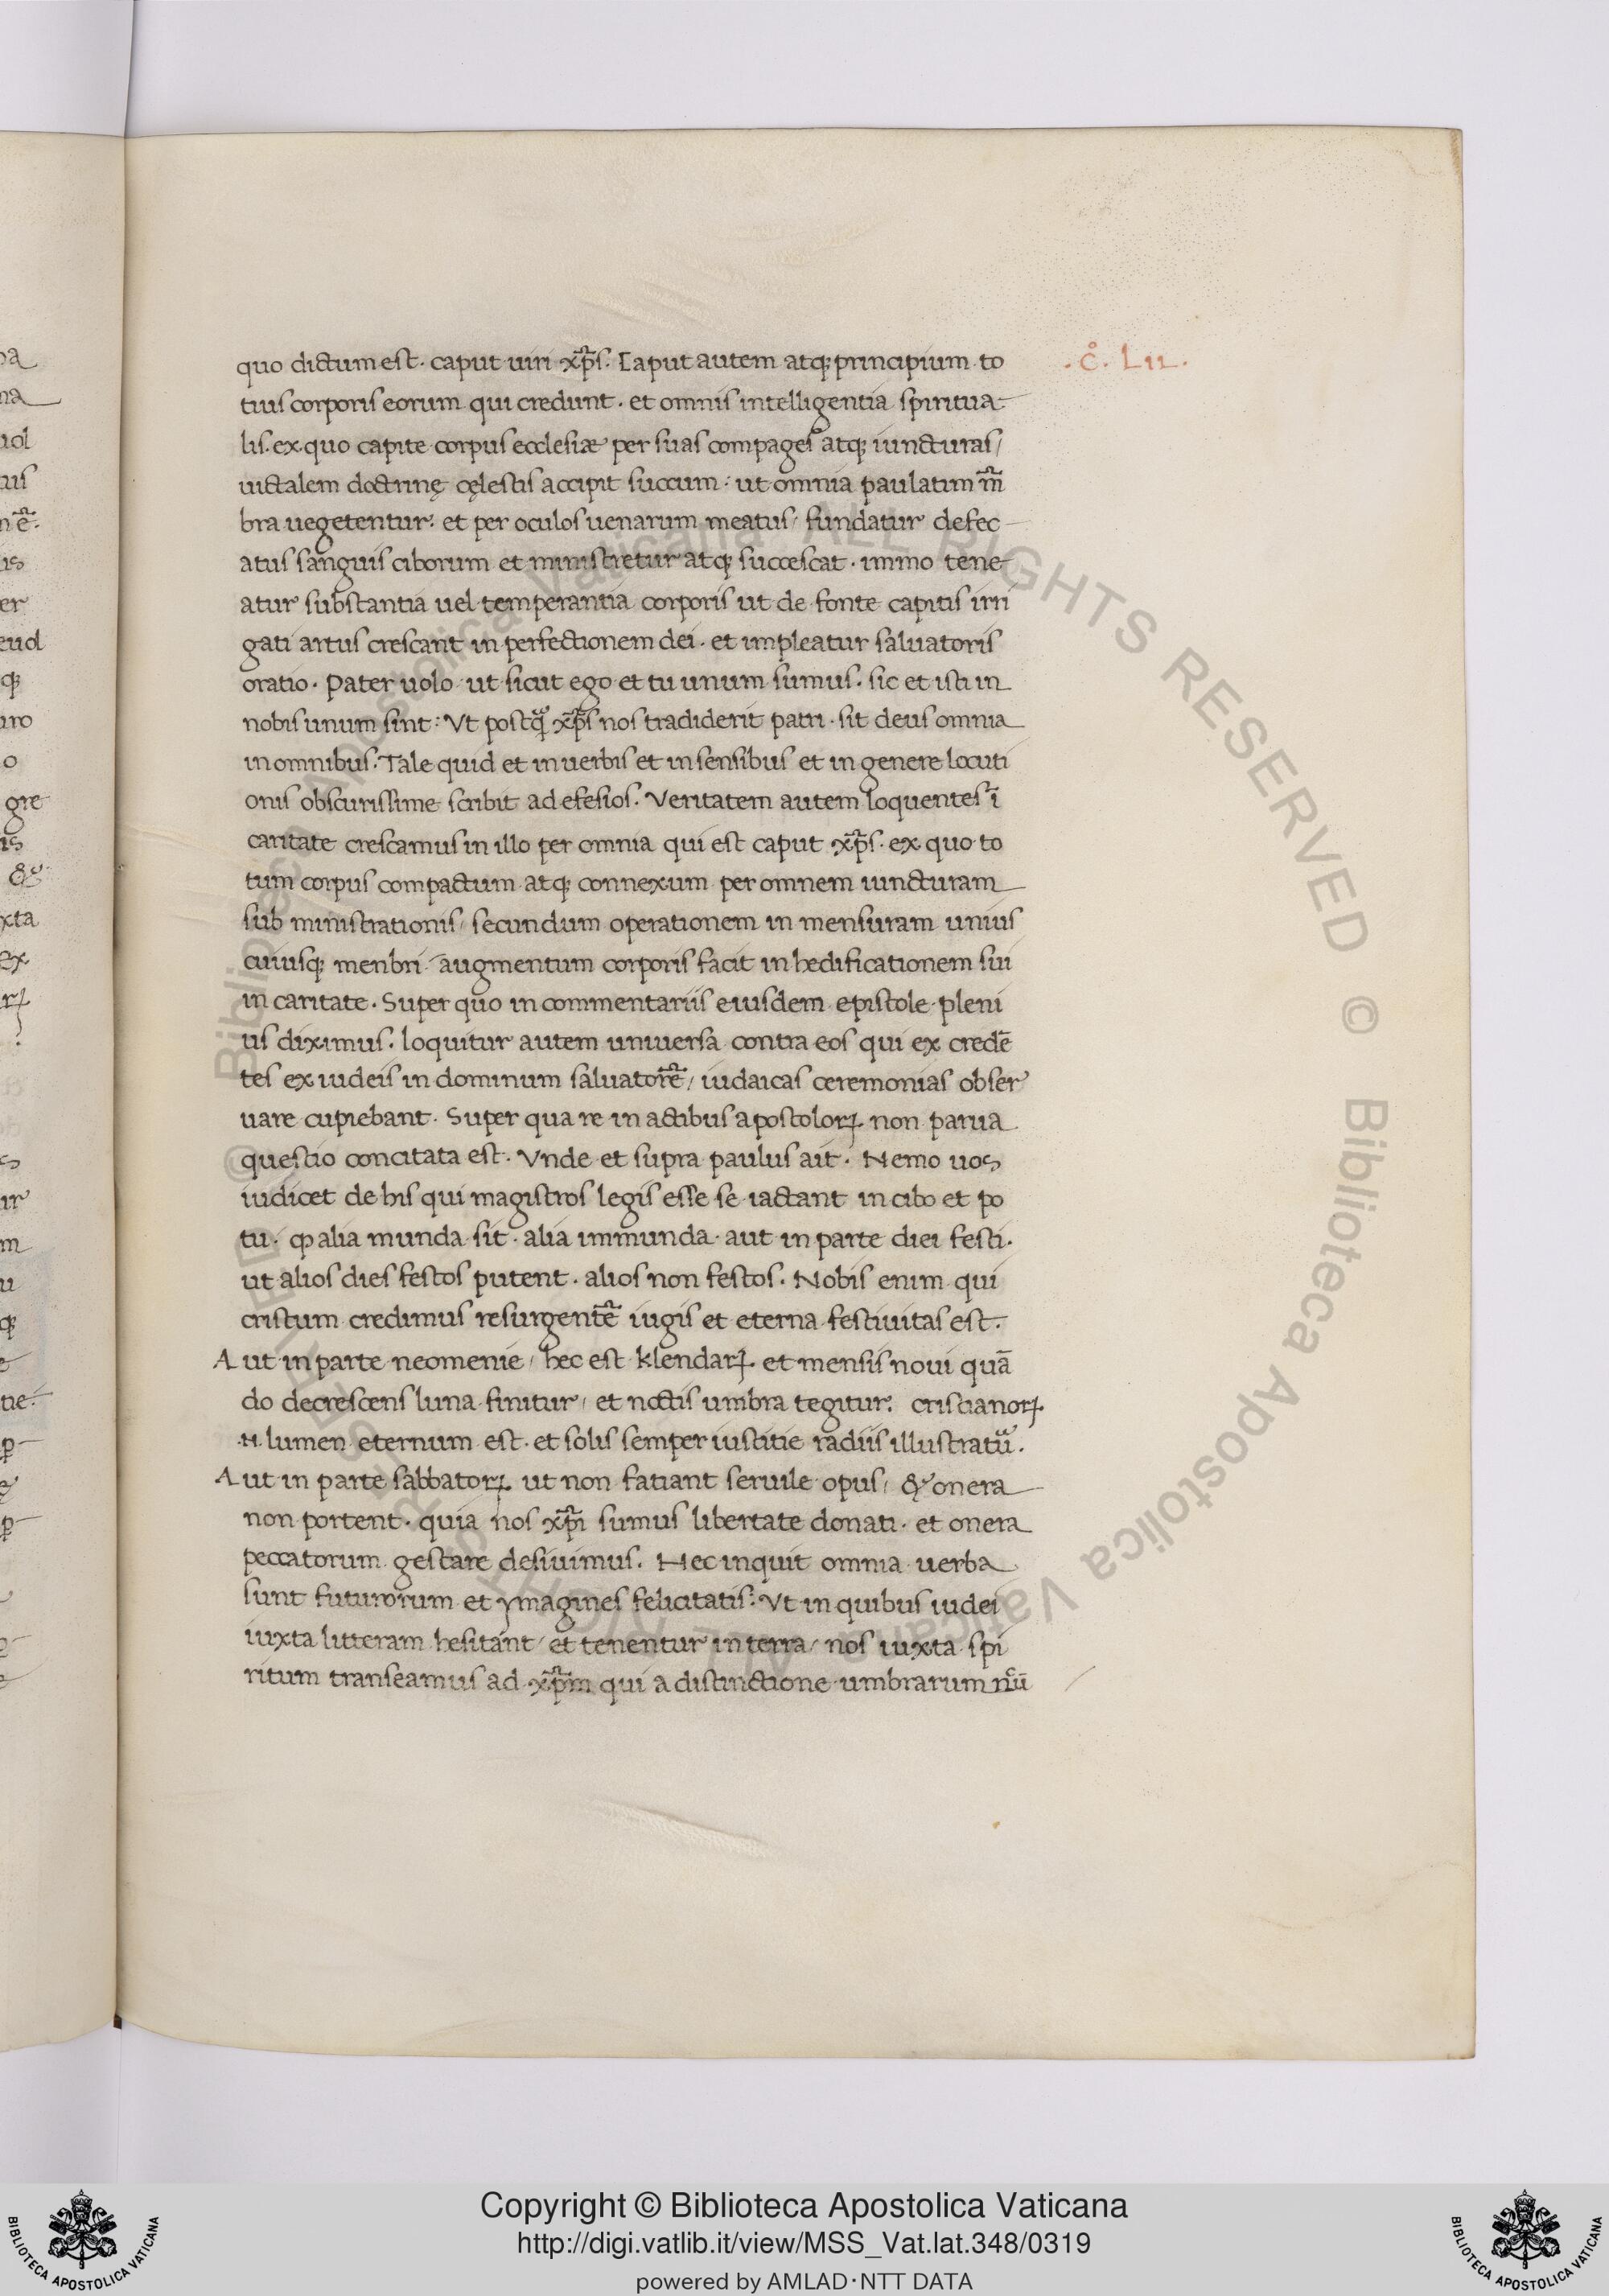 quo dictum est. caput uiri xp̄s. Caput autem atqꝫ principium to
tius corporis eorum qui credunt. et omnis intelligentia spiritua
lis. ex quo capite corpus ecclesiæ per suas compages atqꝫ iuncturas/
uictalem doctrinę cęlestis accipit succum: ut omnia paulatim m̄
bra uegetentur: et per oculos uenarum meatus/ fundatur defec
atus sanguis ciborum et ministretur atqꝫ succescat. immo tene
atur substantia uel temperantia corporis ut de fonte capitis irri
gati artus crescant in perfectionem dei. et impleatur saluatoris
oratio. Pater uolo ut sicut ego et tu unum sumus. sic et isti in
nobis unum sint: Vt postq̄ xp̄s nos tradiderit patri. sit deus omnia
in omnibus. Tale quid et in uerbis et in sensibus et in genere locuti
onis obscurissime scribit ad efesios. Veritatem autem loquentes ī
caritate crescamus in illo per omnia qui est caput xp̄s. ex quo to
tum corpus compactum atqꝫ connexum per omnem iuncturam
sub ministrationis/ secundum operationem in mensuram unius
cuiusqꝫ menbri augmentum corporis facit in hedificationem sui
in caritate. Super quo in commentariis eiusdem epistole pleni
us diximus. loquitur autem uniuersa contra eos qui ex credē
tes ex iudeis in dominum saluatorē/ iudaicas ceremonias obser
uare cupiebant. Super qua re in actibus apostolorꝝ non parua
questio concitata est. Vnde et supra paulus ait. Nemo uos
iudicet de his qui magistros legis esse se iactant in cibo et po
tu. ꝙ alia munda sit. alia immunda. aut in parte diei festi.
ut alios dies festos putent. alios non festos. Nobis enim qui
cristum credimus resurgentē iugis et eterna festiuitas est.
Aut in parte neomenie/ hec est klendarꝝ. et mensis noui quā
do decrescens luna finitur/ et noctis umbra tegitur. cristianorꝝ
.N. lumen eternum est. et solis semper iustitie radiis illustratū.
Aut in parte sabbatorꝝ ut non fatiant seruile opus/ & onera
non portent. quia nos xp̄i sumus libertate donati. et onera
peccatorum gestare desiuimus. Hec inquit omnia uerba
sunt futurorum et ymagines felicitatis: Vt in quibus iudei
iuxta litteram hesitant/ et tenentur in terra/ nos iuxta spi
ritum transeamus ad xp̄m qui a distinctione umbrarum nūc
.c°. LII.
Copyright © Biblioteca Apostolica Vaticana
http://digi.vatlib.it/view/MSS_Vat.lat.348/0319
powered by AMLAD·NTT DATA
BIBLIOTECA APOSTOLICA VATICANA
BIBLIOTECA APOSTOLICA VATICANA
© Biblioteca Apostolica Vaticana ALL RIGHTS RESERVED © Biblioteca Apostolica Vaticana ALL RIGHTS RESERVED